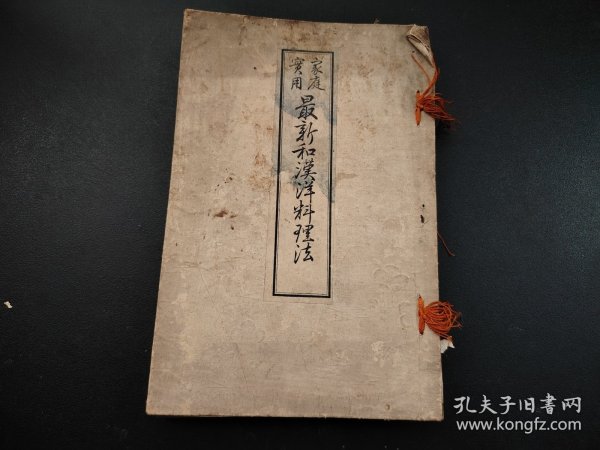 家庭
實用
最新和漢洋料理法
孔夫子旧書网
www.kongfz.com